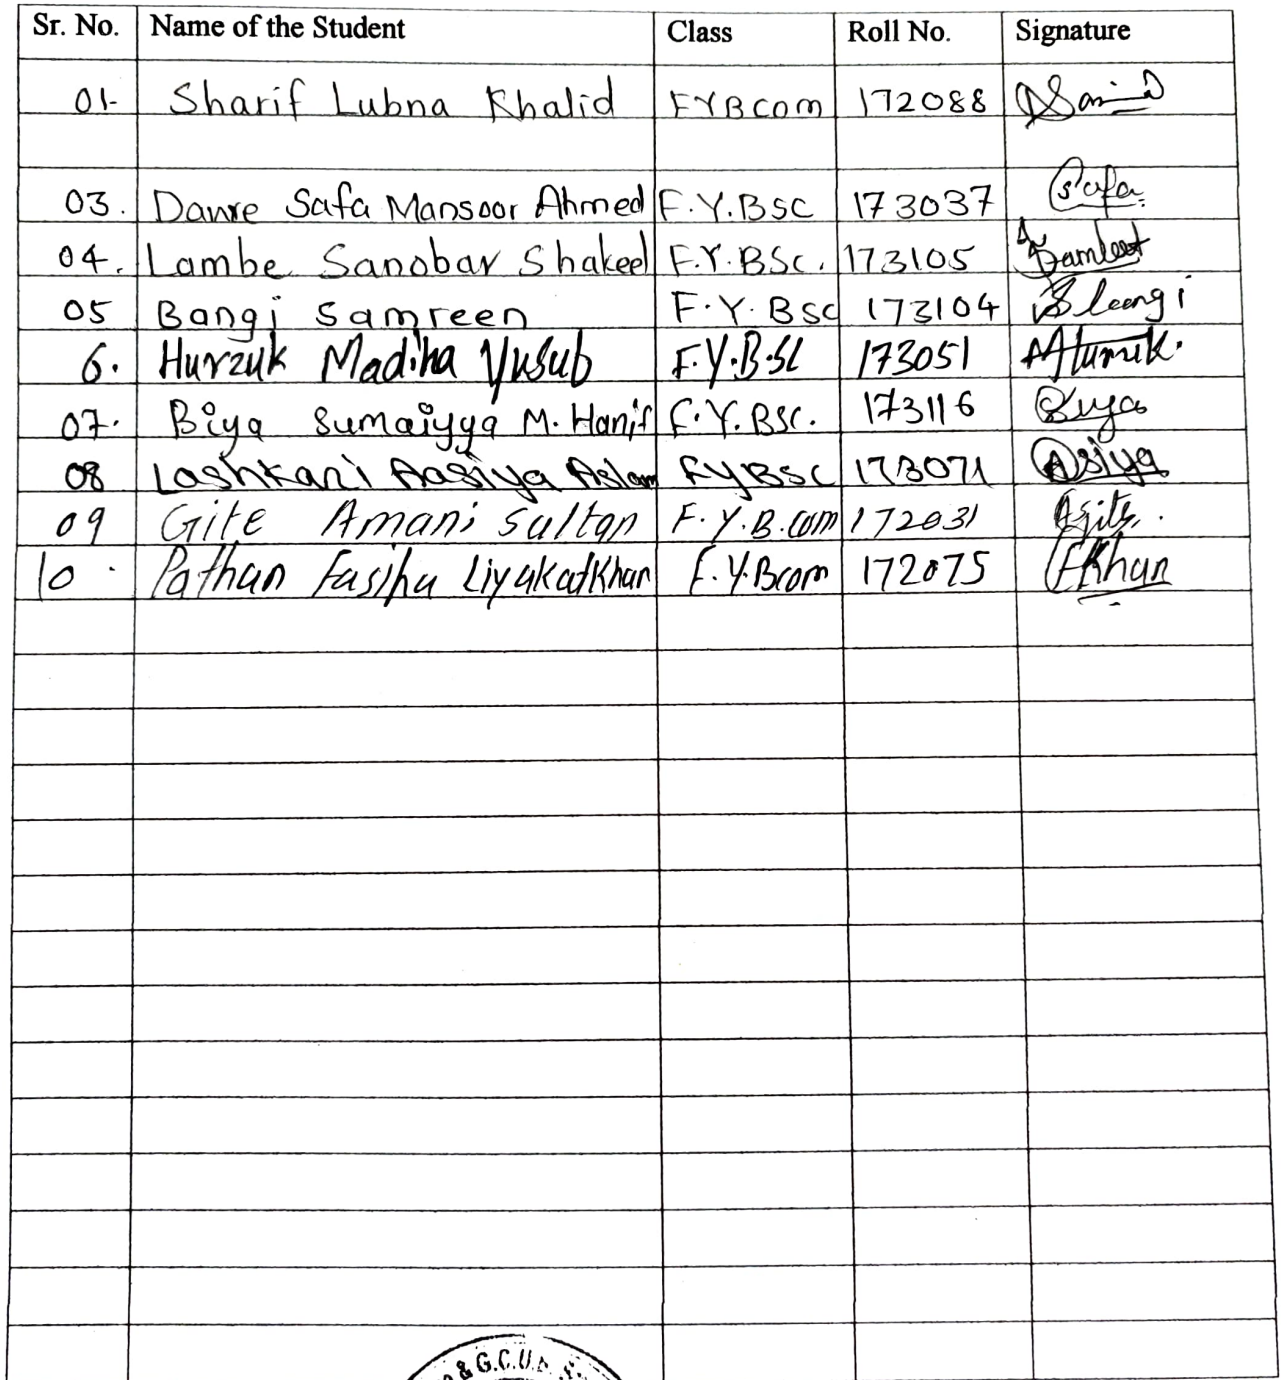 Sr. No. Name of the Student Class Roll No. Signature
01- Sharif Lubna Khalid FYBcom 172088
03. Danre Safa Mansoor Ahmed F.Y.Bsc 173037 Safa
04. Lambe Sanobar Shakeel F.Y.BSc. 173105
05 Bangi Samreen F.Y.BSc 173104
6. Hurzuk Madiha Yusub F.Y.B.Sc 173051
07. Biya Sumaiyya M. Hanif F.Y.BSc. 173116 Biya
08 Lashkari Aasiya Aslam FYBSC 173071 Asiya
09 Gite Amani Sultan F.Y.B.com 172031 Agite.
10 Pathan Fasiha Liyakatkhan F.Y.Bcom 172075 FKhan
& G.C.U.